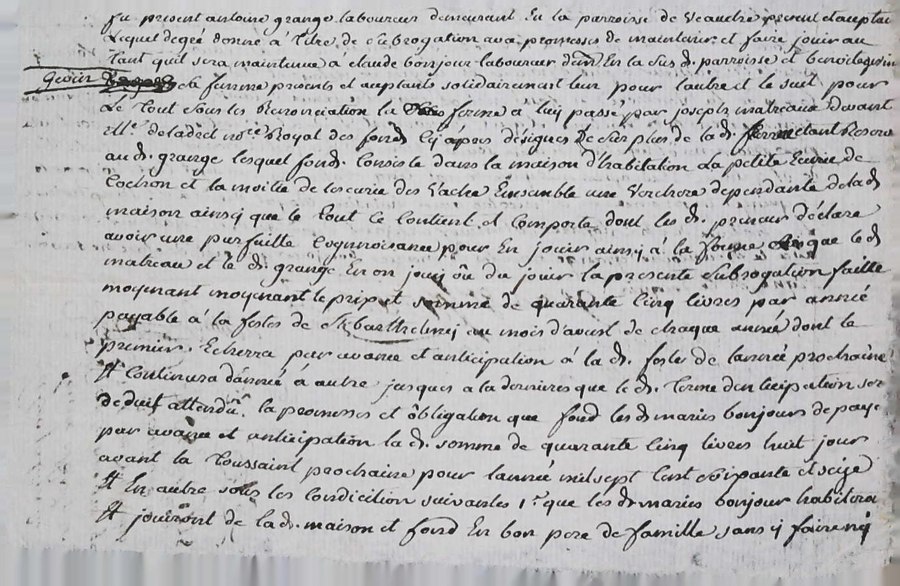 fu present antoine grange laboureur demeurant En la parroisse de Veaudre present et aceptan
Lequel degré donne à titre de subrogation avec promesses de maintenir et faire jouir au
tant quil sera maintenue a claude bonjour laboureur d'en la sus d. parroisse et benoite
gevin
sa femme presents et aceptants solidairement leur pour lautre et le seul pour
Le tout sous les Renonciation la ferme à luy passé par joseph matreaux devant
Me. deladret nore Royal des fonds cy apres désignés de surplus de la d. ferme etant Reserve
au d. grange lesquel fond Consiste dans la maison d'habitation La petite Ecurie de
Cochon et la moitie de lescurie des Vache Ensemble une Verchere dependante de lad
maison ainsy que le tout ce Contient et Comporte dont les d. preneur déclare
avoir une parfaitte Cognoissance pour En jouir ainsy à la forme que le d
matreau et le d. grange En on jouy ou du jouir la presente subrogation faitte
moyenant moyenant le prix et somme de quarante cinq livres par année
payable à la festes de st barthelemy au mois d'aoust de chaque année dont le
premier Echerra par avance et anticipation à la d. festes de lannée prochaine
et Continuera dannée à autre jusques a la dernieres que le d. terme danticipation ser
deduit attendû la promesses et obligation que fond les d maries bonjours de paye
par avance et anticipation la d. somme de quarante cinq livres huit jour
avant la toussaint prochaine pour lannée mil sept cent soixante et seize
et En autre sous les Condiction suivantes 1° que les d maries bonjour habitera
et jouiront de la d. maison et fond En bon pere de famille sans y faire ny